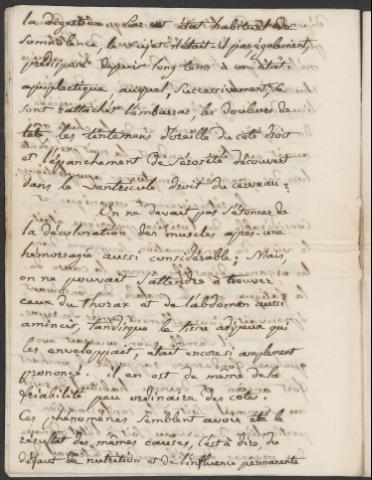 la digestion. Par cet état habituel de
somnolence, le sujet n'était il pas également
prédisposé depuis long tems à un état
apoplectique auquel, successivement se
sont rattachés l'embarras, les douleurs de
tête les tintemens d'oreille du coté droit
et l'épanchement de sérosité découvert
dans le ventricule droit du cerveau?
On ne devait pas s'étonner de
la décoloration des muscles après une
hémorragie aussi considérable; Mais,
on ne pouvait s'attendre à trouver
ceux du thorax et de l'abdomen aussi
amincis, tandisque le tissu adipeux qui
les enveloppait, était encore si amplement
prononcé. il en est de meme de la
friabilité peu ordinaire des cotes:
Ces phénomènes semblent avoir été le
résultat des mêmes causes, c'est à dire du
défaut de nutrition et de l'influence permanente